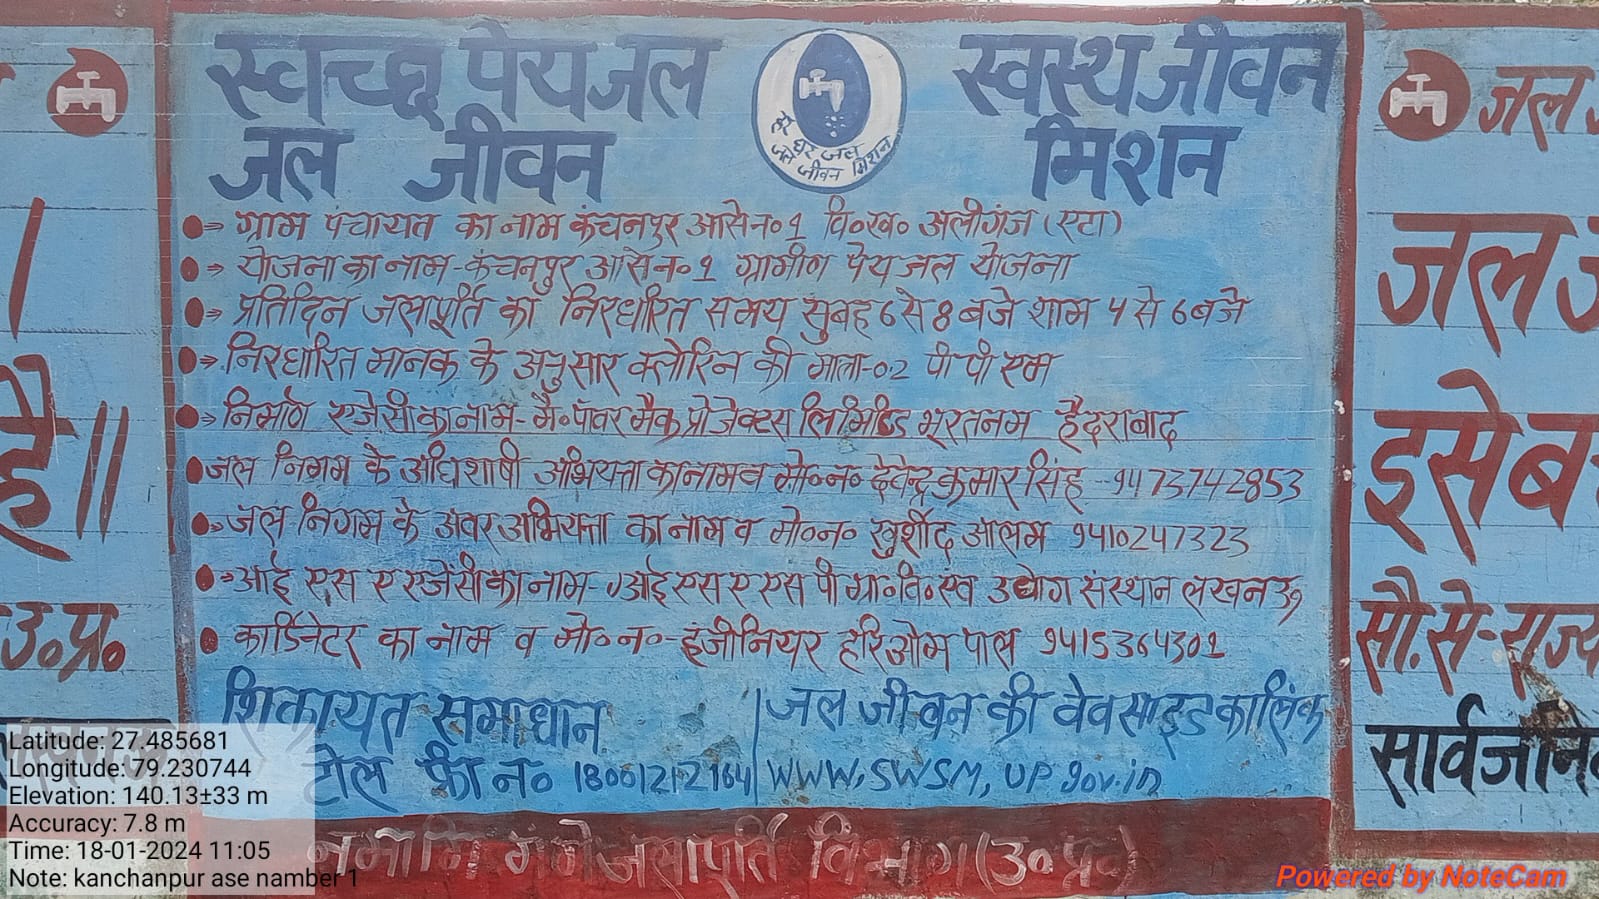 स्वच्छ पेयजल स्वस्थ जीवन
जल जीवन मिशन
हर घर जल
जल जीवन मिशन
ग्राम पंचायत का नाम कंचनपुर आसे न० 1 वि०ख० अलीगंज (एटा)
योजना का नाम-कंचनपुर आसे न० 1 ग्रामीण पेयजल योजना
प्रतिदिन जलापूर्ति का निरधारित समय सुबह 6 से 8 बजे शाम 4 से 6 बजे
निरधारित मानक के अनुसार क्लोरिन की मात्रा-0.2 पी पी एम
निर्माण एजेंसी का नाम-मै० पॉवर मैक प्रोजेक्टस लिमिटिड भूरतनम हैदराबाद
जल निगम के अधिशाषी अभियन्ता का नाम व मो०न० देवेन्द्र कुमार सिंह-9473742853
जल निगम के अवर अभियन्ता का नाम व मो०न० खुर्शीद आलम 9410247323
आई एस ए एजेंसी का नाम-आई एस ए एस पी ग्रा०वि०एव उद्योग संस्थान लखनऊ
कार्डिनेटर का नाम व मो०न०-इंजीनियर हरिओम पाल 9415364301
शिकायत समाधान
टोल फ्री न० 18001212164
जल जीवन की वेवसाइड का लिंक
WWW.SWSM, UP gov.in
नमामि गंगे जलापूर्ति विभाग (उ० प्र०)
।
है॥
उ.प्र.
जल
जल
इसे
सौ.से-राज्य
Latitude: 27.485681
Longitude: 79.230744
Elevation: 140.13±33 m
Accuracy: 7.8 m
Time: 18-01-2024 11:05
Note: kanchanpur ase namber 1
Powered by NoteCam